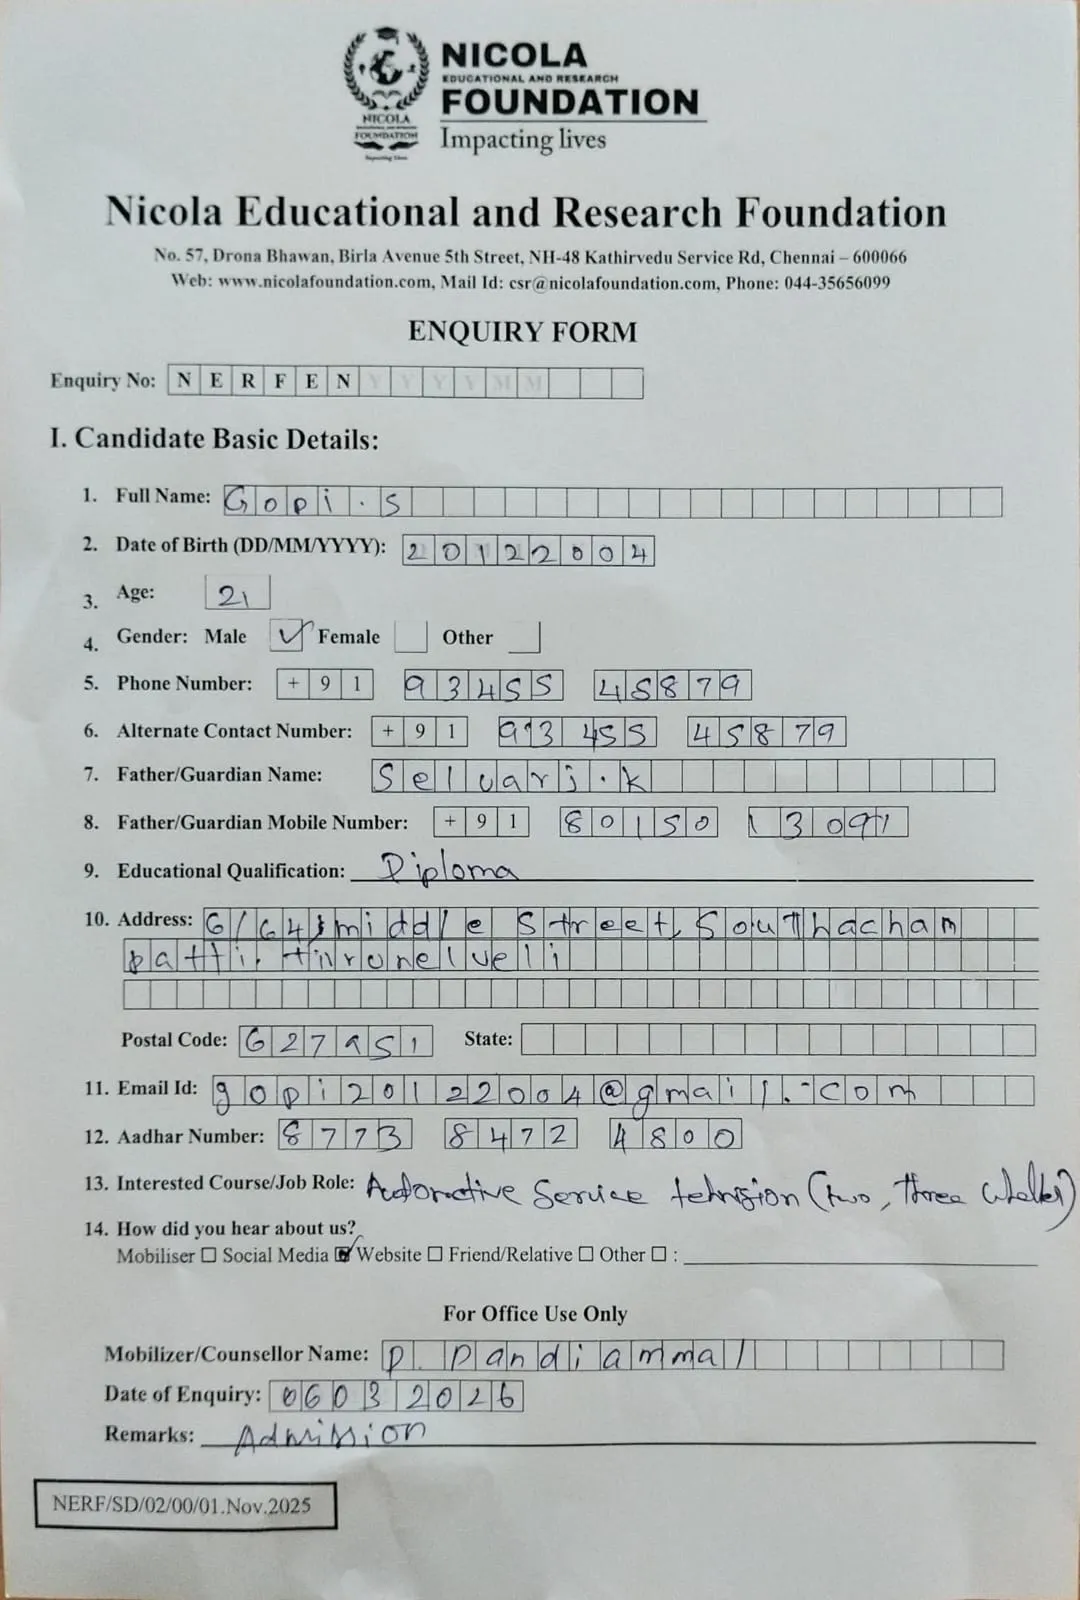 NICOLA
EDUCATIONAL AND RESEARCH
FOUNDATION
Impacting lives
NICOLA
FOUNDATION
Impacting lives
Nicola Educational and Research Foundation
No. 57, Drona Bhawan, Birla Avenue 5th Street, NH-48 Kathirvedu Service Rd, Chennai – 600066
Web: www.nicolafoundation.com, Mail Id: csr@nicolafoundation.com, Phone: 044-35656099
ENQUIRY FORM
Enquiry No: N E R F E N Y Y Y Y M M
I. Candidate Basic Details:
1. Full Name: Gopi.S
2. Date of Birth (DD/MM/YYYY): 20122004
3. Age: 21
4. Gender: Male ✓ Female Other
5. Phone Number: +91 93455 45879
6. Alternate Contact Number: +91 93455 45879
7. Father/Guardian Name: Selvarj.k
8. Father/Guardian Mobile Number: +91 80150 13091
9. Educational Qualification: Diploma
10. Address: 6/64, middle Street, Southacham
patti, tirunelveli
Postal Code: 627951 State:
11. Email Id: gopi20122004@gmail.com
12. Aadhar Number: 8773 8472 4800
13. Interested Course/Job Role: Automotive Service (two, three
14. How did you hear about us?
Mobiliser ☐ Social Media ☑ Website ☐ Friend/Relative ☐ Other ☐ :
For Office Use Only
Mobilizer/Counsellor Name: P. Pandiammal
Date of Enquiry: 06032026
Remarks: Admission
NERF/SD/02/00/01.Nov.2025